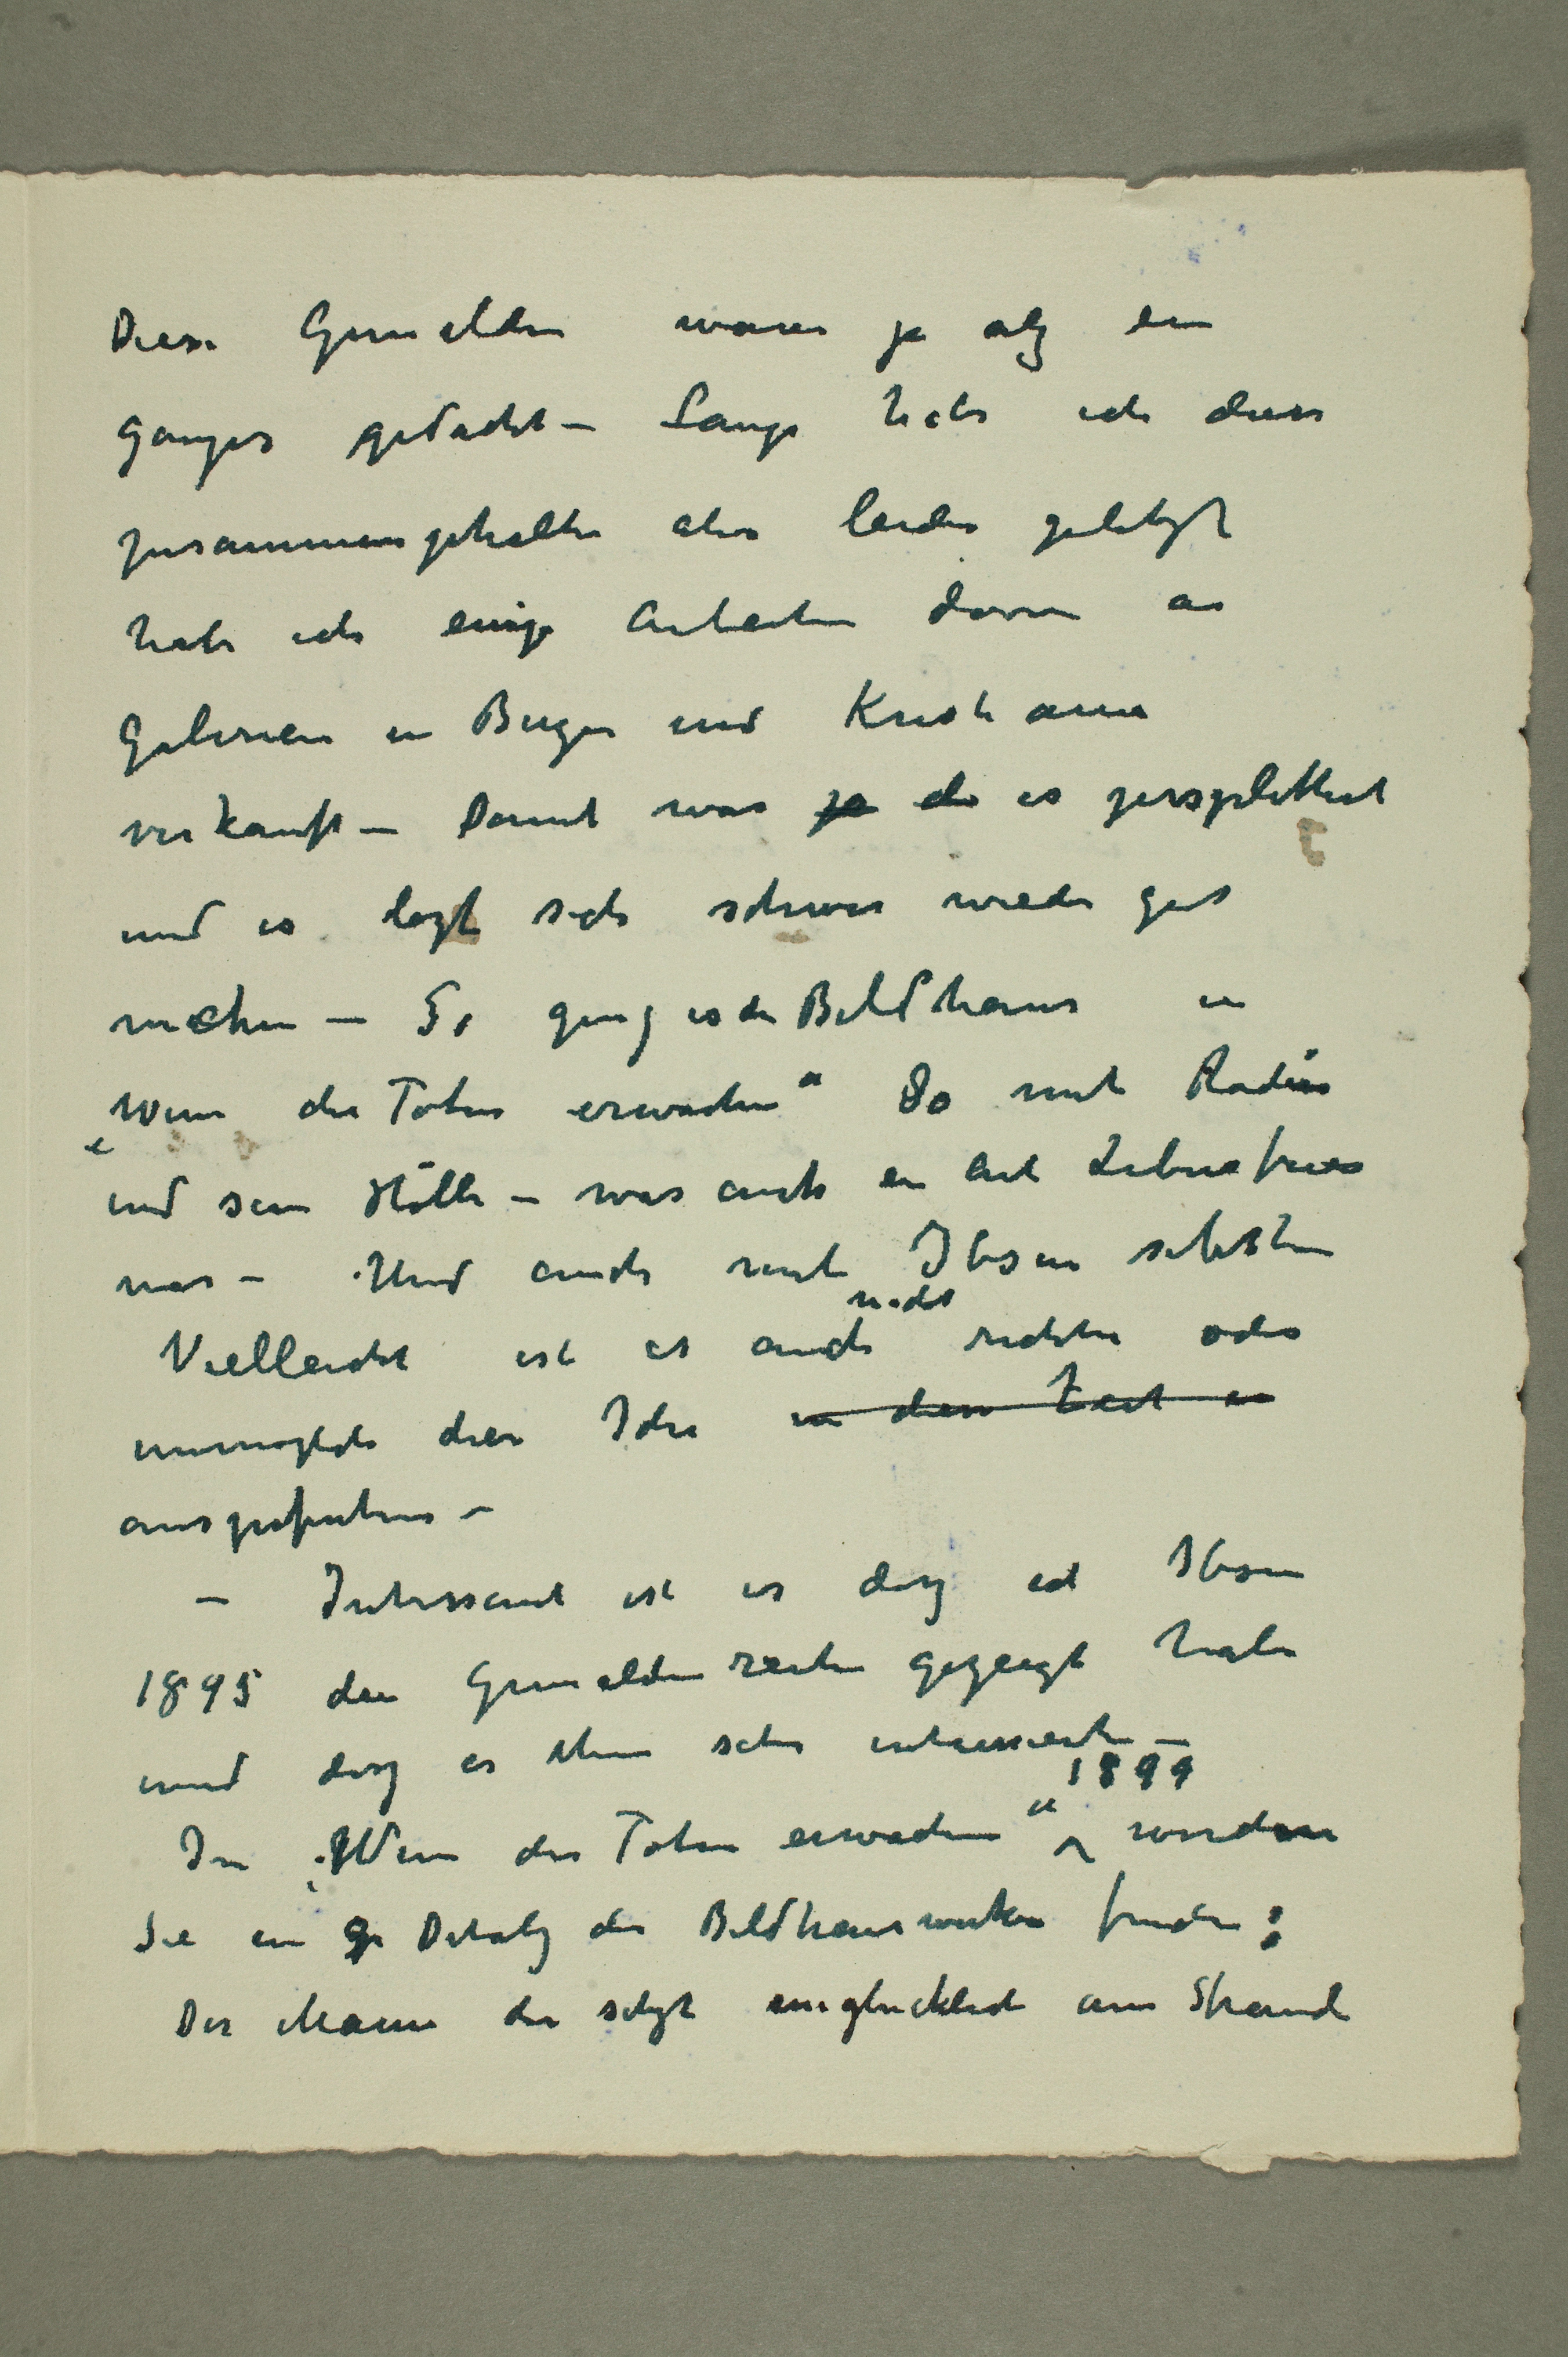 Diese Gemälden waren ja alz ein
Ganzes gedacht – Lange habe ich diese
zusammengehalten aber leider zuletzt
habe ich einige Arbeiten davon an
Galerien in Bergen und Kristiania
verkauft – Damit war ja die es zersplittert
und es lazt sich schwer wieder gut
machen – So ging es den Bildhauer in
„Wenn die Toten erwachen“ So mit Rodin
und sein Hölle – was auch ein Art Lebensfries
war – Und auch mit Ibsen selbsten
nicht
Vielleicht ist es auch richtig oder
unmöglich diese Idee in diese Zeit an
auszuführen –
– Interessant ist es daz ich Ibsen
1895 die Gemäldenreihen gezeigt habe
und daz es ihm sehr interessierte –
1899
In „Wenn die Toten erwachen“ werden
Sie ein g Detalz der Bildhauerwerken finden:
Der Mann der sitzt unglücklich am Strand